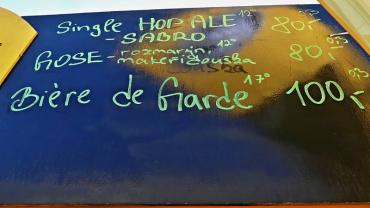 Single HOP ALE 12° 80,- 0,5
- SABRO
GOSE - rozmarin, 12° 80,- 0,5
mateřídouška
Bière de Garde 17° 100,- 0,5